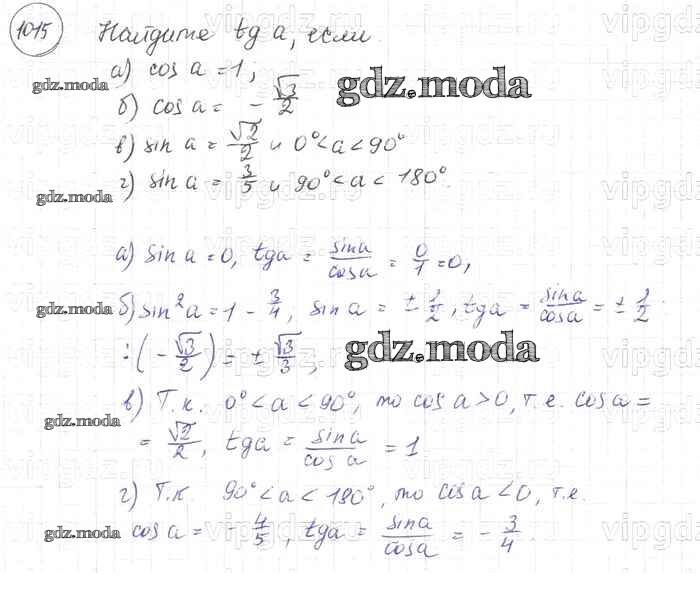 1015 Найдите tg a, если
а) cos a = 1;
б) cos a = - √3/2
в) sin a = √2/2 и 0° < a < 90°
г) sin a = 3/5 и 90° < a < 180°.
а) sin a = 0, tg a = sin a/cos a = 0/1 = 0,
б) sin² a = 1 - 3/4, sin a = ± 1/2, tg a = sin a/cos a = ± 1/2
: (- √3/2) = ± √3/3,
в) Т.к. 0° < a < 90°, то cos a > 0, т.е. cos a =
= √2/2, tg a = sin a/cos a = 1
г) Т.к. 90° < a < 180°, то cos a < 0, т.е.
cos a = - 4/5, tg a = sin a/cos a = - 3/4.
gdz.moda
gdz.moda
gdz.moda
gdz.moda
gdz.moda
gdz.moda
gdz.moda